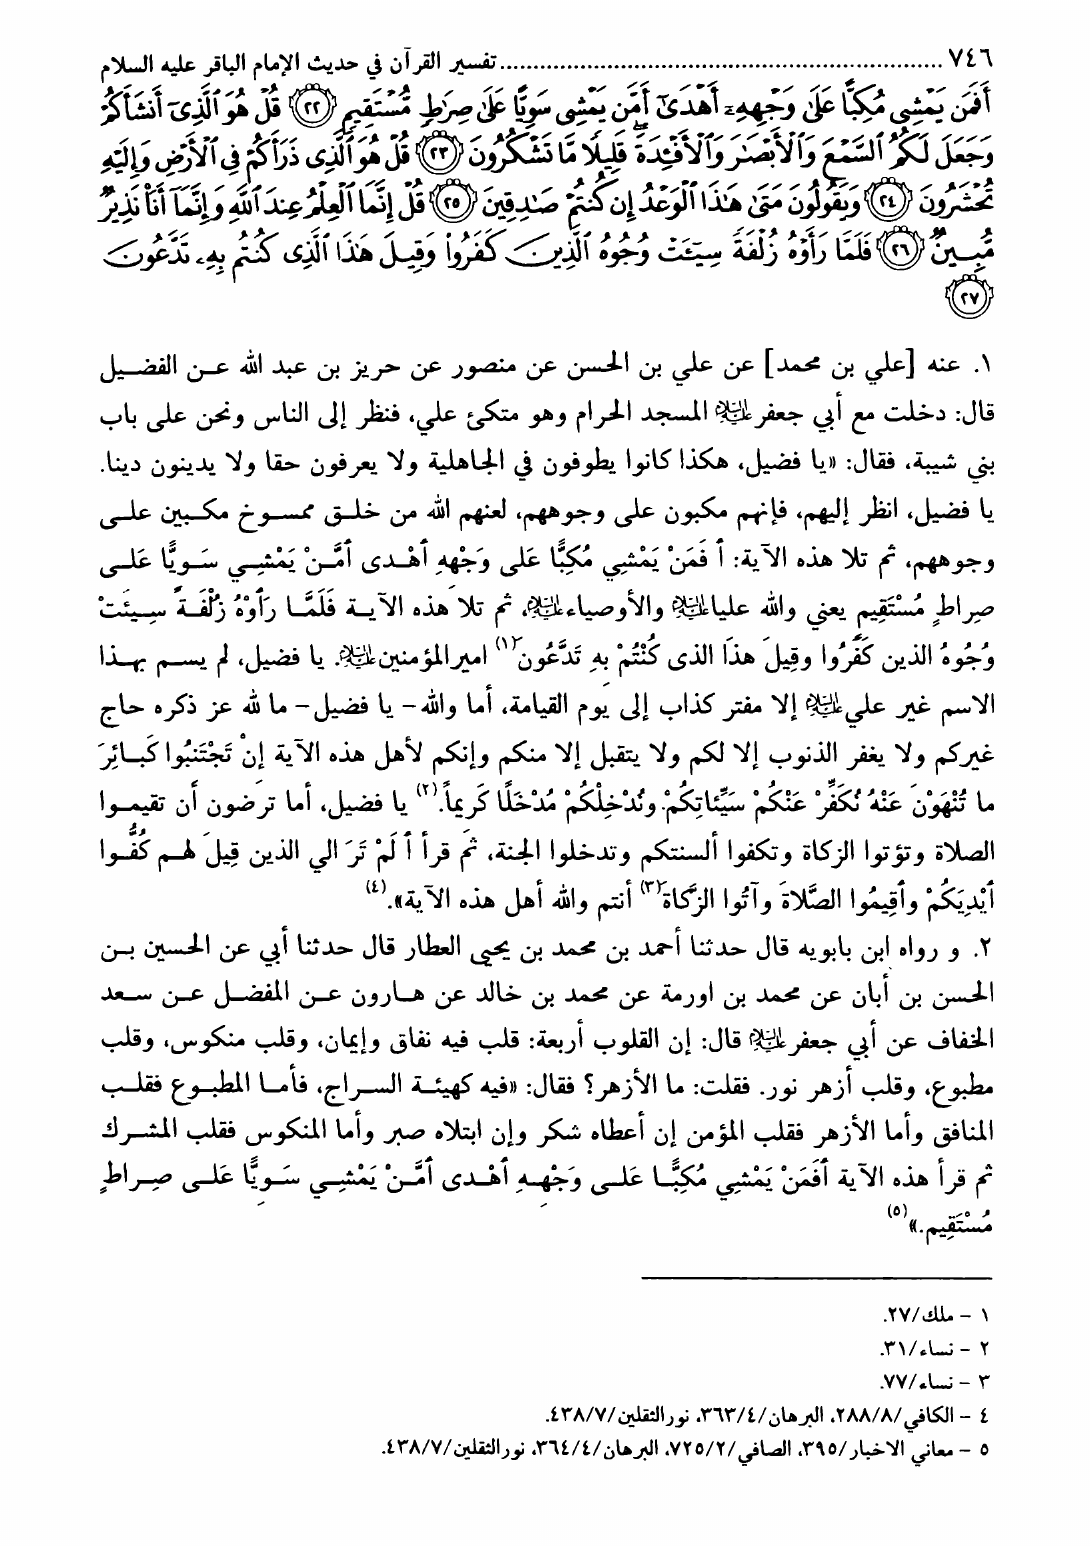 ٧٤٦ .................................................................. تفسير القرآن في حديث الإمام الباقر عليه السلام
أَفَمَن يَمْشِى مُكِبًّا عَلَىٰ وَجْهِهِۦٓ أَهْدَىٰٓ أَمَّن يَمْشِى سَوِيًّا عَلَىٰ صِرَٰطٍ مُّسْتَقِيمٍ ٢٢ قُلْ هُوَ ٱلَّذِىٓ أَنشَأَكُمْ
وَجَعَلَ لَكُمُ ٱلسَّمْعَ وَٱلْأَبْصَٰرَ وَٱلْأَفْـِٔدَةَ ۖ قَلِيلًا مَّا تَشْكُرُونَ ٢٣ قُلْ هُوَ ٱلَّذِى ذَرَأَكُمْ فِى ٱلْأَرْضِ وَإِلَيْهِ
تُحْشَرُونَ ٢٤ وَيَقُولُونَ مَتَىٰ هَٰذَا ٱلْوَعْدُ إِن كُنتُمْ صَٰدِقِينَ ٢٥ قُلْ إِنَّمَا ٱلْعِلْمُ عِندَ ٱللَّهِ وَإِنَّمَآ أَنَا۠ نَذِيرٌ
مُّبِينٌ ٢٦ فَلَمَّا رَأَوْهُ زُلْفَةً سِيٓـَٔتْ وُجُوهُ ٱلَّذِينَ كَفَرُوا۟ وَقِيلَ هَٰذَا ٱلَّذِى كُنتُم بِهِۦ تَدَّعُونَ
٢٧
١. عنه [علي بن محمد] عن علي بن الحسن عن منصور عن حريز بن عبد الله عن الفضيل
قال: دخلت مع أبي جعفر عليه السلام المسجد الحرام وهو متكئ علي، فنظر إلى الناس ونحن على باب
بني شيبة، فقال: «يا فضيل، هكذا كانوا يطوفون في الجاهلية ولا يعرفون حقا ولا يدينون دينا.
يا فضيل، انظر إليهم، فإنهم مكبون على وجوههم، لعنهم الله من خلق ممسوخ مكبين على
وجوههم، ثم تلا هذه الآية: أَ فَمَنْ يَمْشِي مُكِبًّا عَلى وَجْهِهِ أَهْدى أَمَّنْ يَمْشِي سَوِيًّا عَلى
صِراطٍ مُسْتَقِيمٍ يعني والله عليا عليه السلام والأوصياء عليه السلام، ثم تلا هذه الآية فَلَمَّا رَأَوْهُ زُلْفَةً سِيئَتْ
وُجُوهُ الذين كَفَرُوا وقِيلَ هذَا الذى كُنْتُمْ بِهِ تَدَّعُونَ(١) امير المؤمنين عليه السلام. يا فضيل، لم يسم بهذا
الاسم غير علي عليه السلام إلا مفتر كذاب إلى يوم القيامة، أما والله- يا فضيل- ما لله عز ذكره حاج
غيركم ولا يغفر الذنوب إلا لكم ولا يتقبل إلا منكم وإنكم لأهل هذه الآية إِنْ تَجْتَنِبُوا كَبائِرَ
ما تُنْهَوْنَ عَنْهُ نُكَفِّرْ عَنْكُمْ سَيِّئاتِكُمْ ونُدْخِلْكُمْ مُدْخَلًا كَرِيماً.(٢) يا فضيل، أما ترضون أن تقيموا
الصلاة وتؤتوا الزكاة وتكفوا ألسنتكم وتدخلوا الجنة، ثم قرأ أَ لَمْ تَرَ الي الذين قِيلَ لهم كُفُّوا
أَيْدِيَكُمْ وأَقِيمُوا الصَّلاةَ وآتُوا الزَّكاةَ(٣) أنتم والله أهل هذه الآية».(٤)
٢. و رواه ابن بابويه قال حدثنا أحمد بن محمد بن يحيى العطار قال حدثنا أبي عن الحسين بن
الحسن بن أبان عن محمد بن اورمة عن محمد بن خالد عن هارون عن المفضل عن سعد
الخفاف عن أبي جعفر عليه السلام قال: إن القلوب أربعة: قلب فيه نفاق وإيمان، وقلب منكوس، وقلب
مطبوع، وقلب أزهر نور. فقلت: ما الأزهر؟ فقال: «فيه كهيئة السراج، فأما المطبوع فقلب
المنافق وأما الأزهر فقلب المؤمن إن أعطاه شكر وإن ابتلاه صبر وأما المنكوس فقلب المشرك
ثم قرأ هذه الآية أَفَمَنْ يَمْشِي مُكِبًّا عَلى وَجْهِهِ أَهْدى أَمَّنْ يَمْشِي سَوِيًّا عَلى صِراطٍ
مُسْتَقِيمٍ.»(٥)
١ - ملك/٢٧.
٢ - نساء/٣١.
٣ - نساء/٧٧.
٤ - الكافي/٢٨٨/٨، البرهان/٣٦٣/٤، نورالثقلين/٤٣٨/٧.
٥ - معاني الاخبار/٣٩٥، الصافي/٧٢٥/٢، البرهان/٣٦٤/٤، نورالثقلين/٤٣٨/٧.